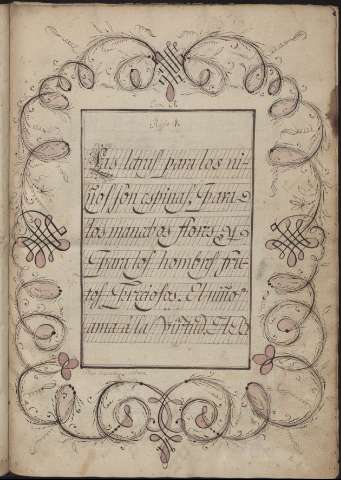 Las letras para los ni-
ños son espinas, Para
los mancebos flores, y
Para los hombres fru-
tos Preciosos. El niño
ama â la Virtud, El